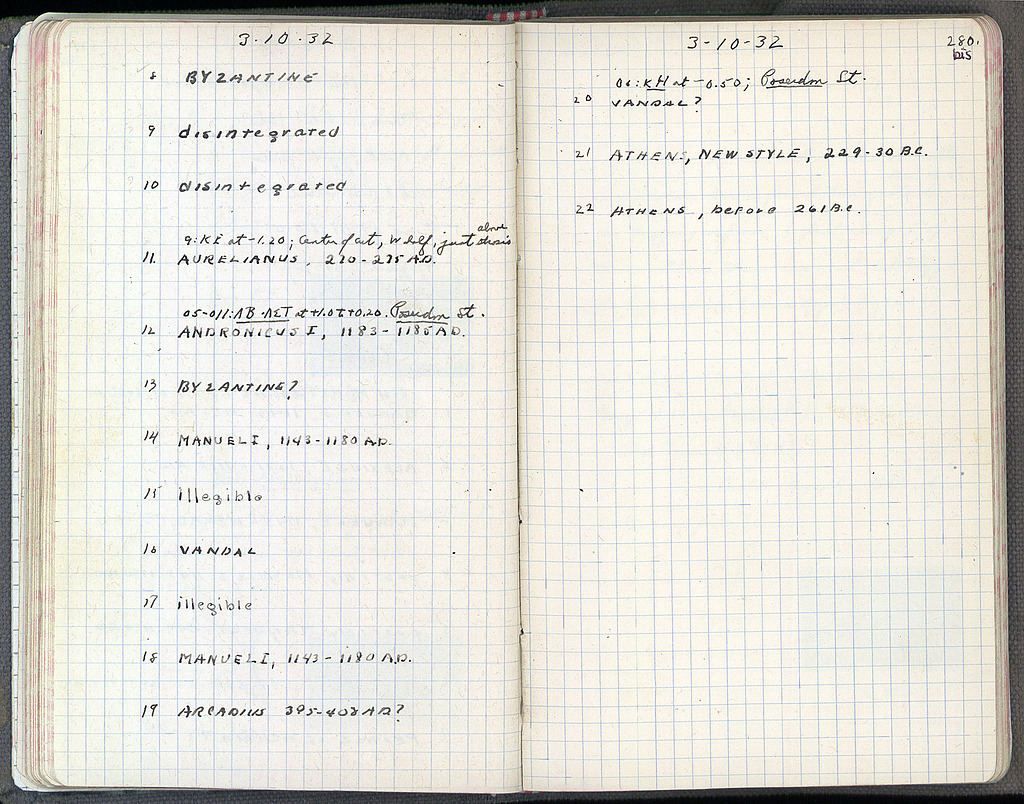 3-10-32
8 BYZANTINE
9 disintegrated
10 disintegrated
above
9:KE at -1.20; Center of cut, W half, just
11. AURELIANUS, 270-275 A.D.
05-011:ΛΒ-ΛΣΤ at +1.0 t +0.20. Poseidon St.
12 ANDRONICUS I, 1183-1185 A.D.
13 BYZANTINE?
14 MANUEL I, 1143-1180 A.D.
15 illegible
16 VANDAL
17 illegible
18 MANUEL I, 1143-1180 A.D.
19 ARCADIUS 395-408 A.D?
3-10-32
280.
bis
06:KH at -0.50; Poseidon St.
20 VANDAL?
21 ATHENS, NEW STYLE, 229-30 B.C.
22 ATHENS, before 261 B.C.